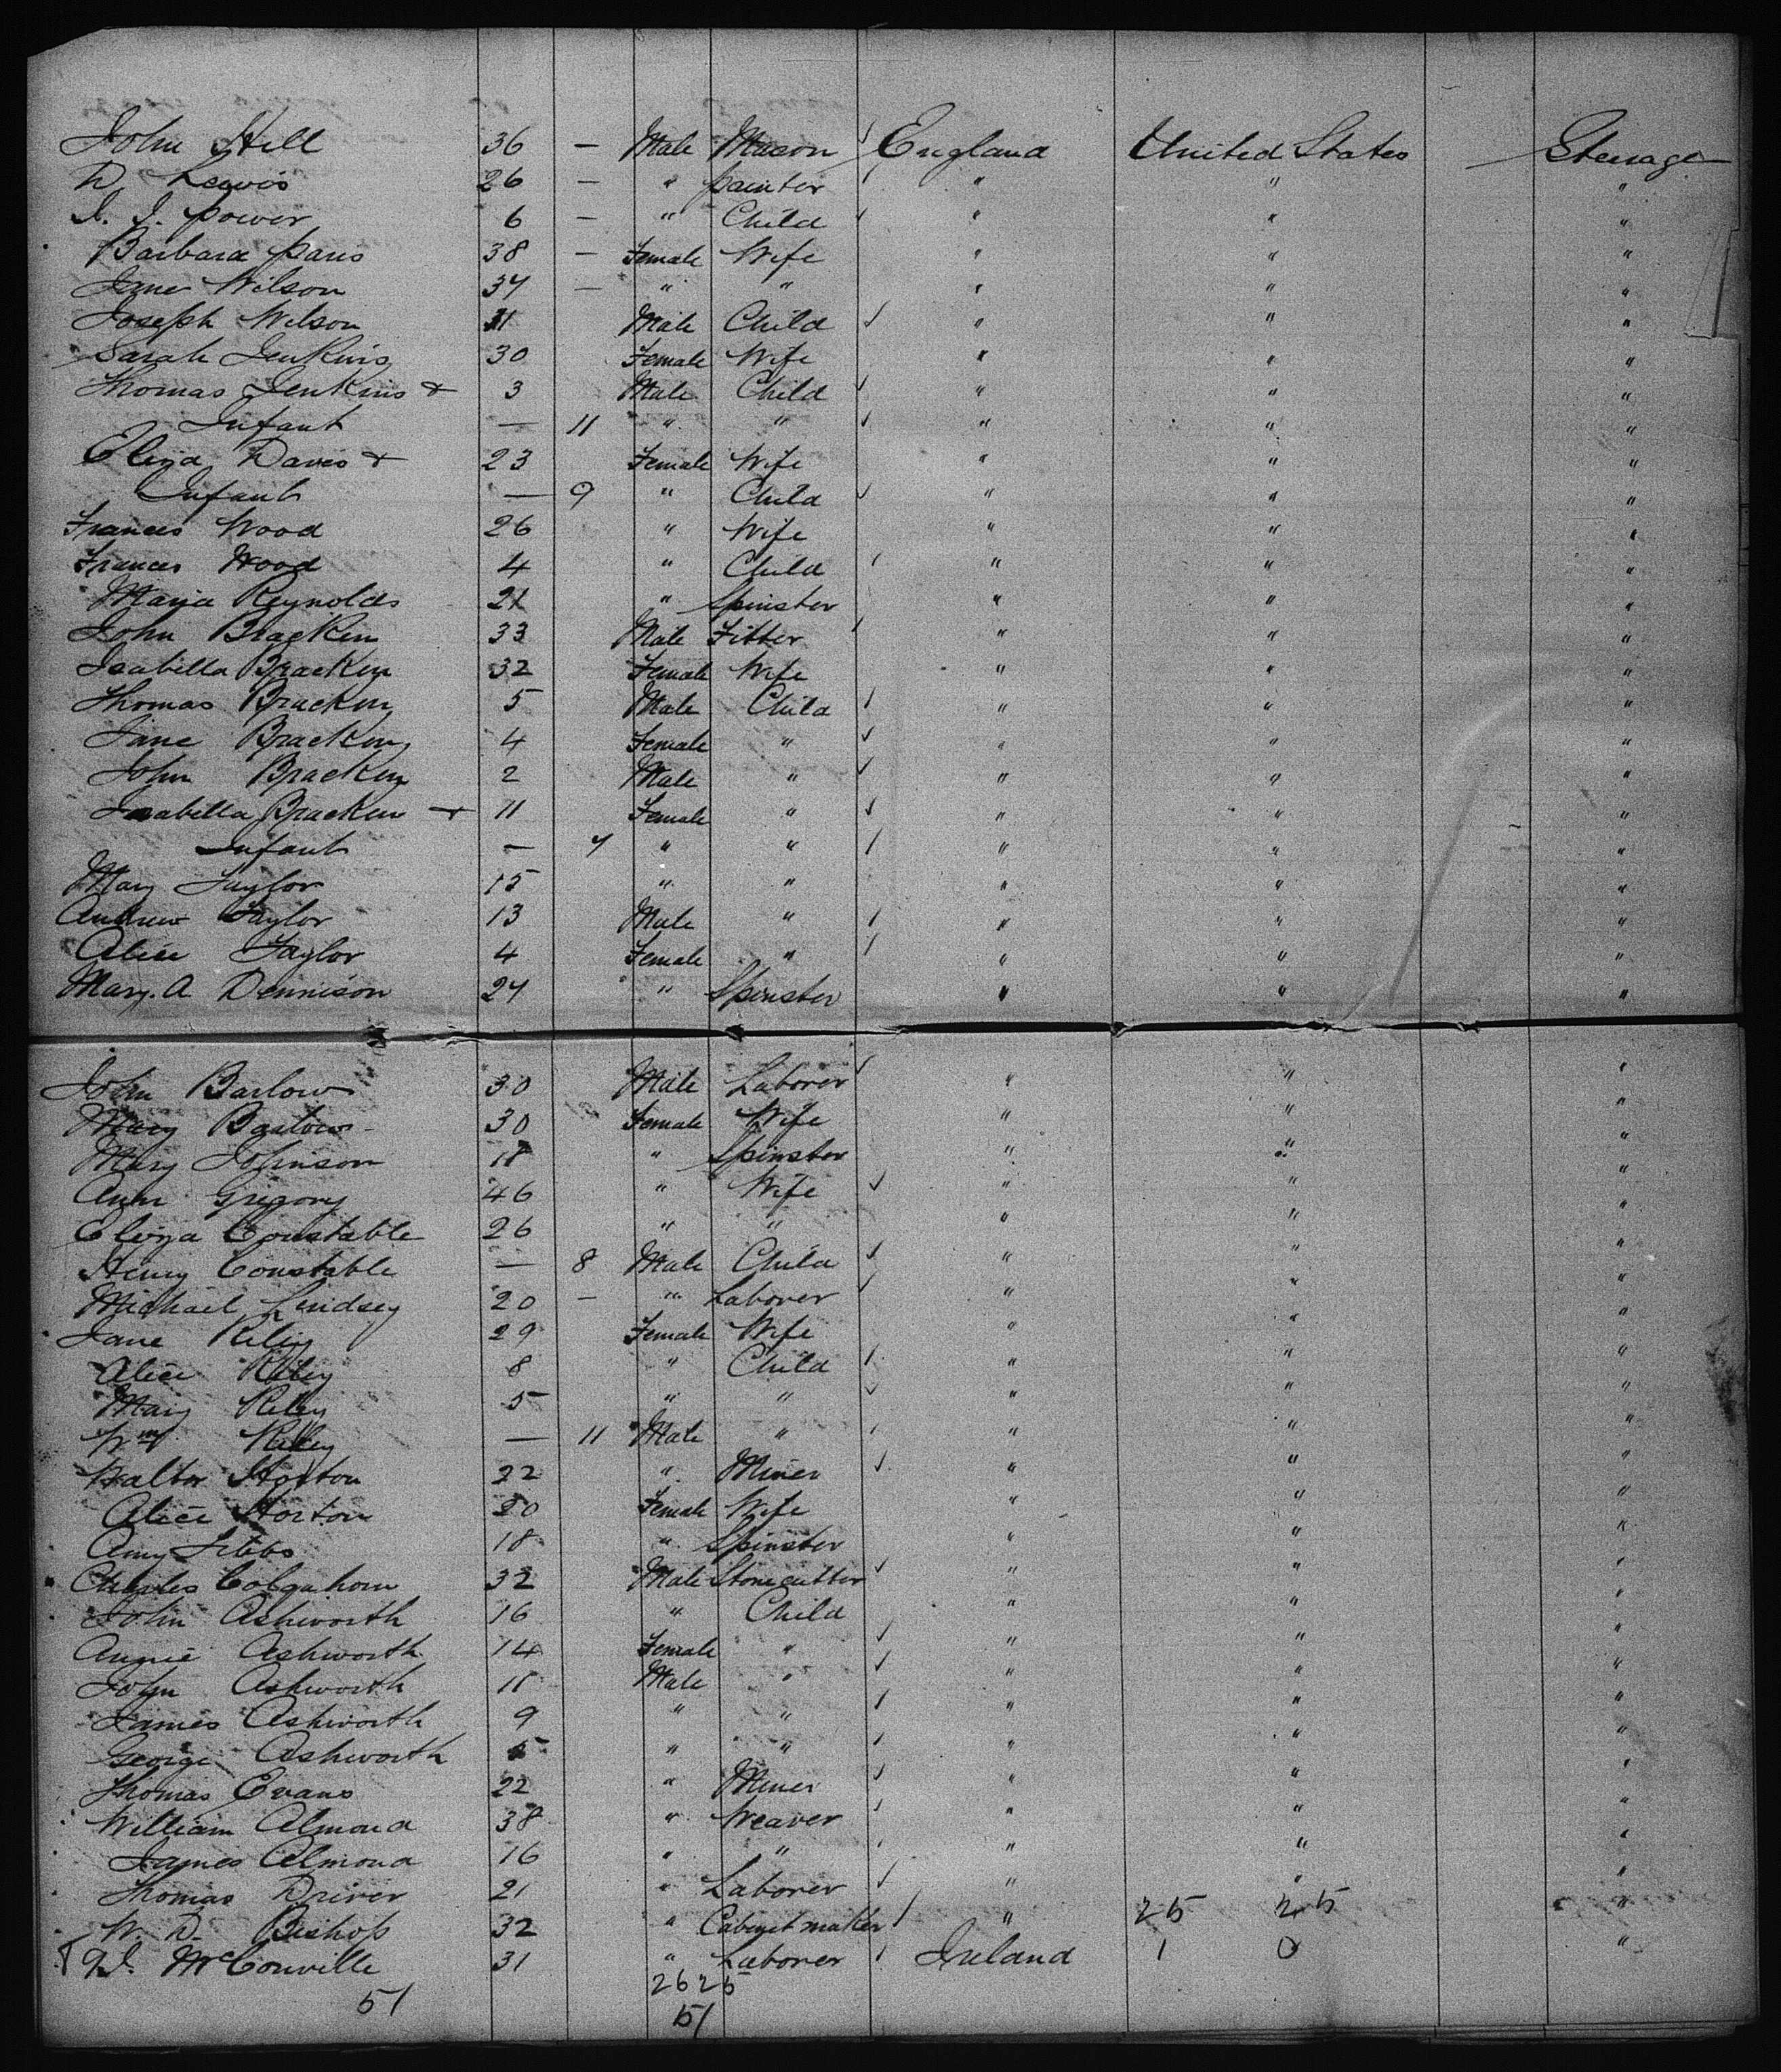 John Hill 36 — Male Mason ✓ England United States Steerage
D. Lewis 26 — " painter ✓ " " "
J. J. power 6 — " Child ✓ " " "
Barbara paris 38 — Female Wife " " "
Jane Wilson 34 — " " " " "
Joseph Wilson 11 Male Child ✓ " " "
Sarah Jenkins 30 Female Wife " " "
Thomas Jenkins + 3 Male Child ✓ " " "
Infant — 11 " " ✓ " " "
Eliza Davis + 23 Female Wife " " "
Infant — 9 " Child ✓ " " "
Frances Wood 26 " Wife " " "
Frances Wood 4 " Child ✓ " " "
Maria Reynolds 21 " Spinster " " "
John Bracken 33 Male Fitter ✓ " " "
Isabella Bracken 32 Female Wife " " "
Thomas Bracken 5 Male Child ✓ " " "
Jane Bracken 4 Female " ✓ " " "
John Bracken 2 Male " ✓ " " "
Isabella Bracken + 11 Female " ✓ " " "
Infant — 7 " " ✓ " " "
Mary Taylor 15 " " " " "
Andrew Taylor 13 Male " ✓ " " "
Alice Taylor 4 Female " ✓ " " "
Mary. A Dennison 24 " Spinster " " "
John Barlow 30 Male Laborer ✓ " " "
Mary Barlow 30 Female Wife " " "
Mary Johnson 18 " Spinster " " "
Ann Gregory 46 " Wife ✓ " " "
Eliza Constable 26 " " " " "
Henry Constable — 8 Male Child ✓ " " "
Michael Lindsey 20 — " Laborer ✓ " " "
Jane Riley 29 Female Wife " " "
Alice Riley 8 " Child ✓ " " "
Mary Riley 5 " " ✓ " " "
Wm Riley — 11 Male " ✓ " " "
Walter Horton 22 " Miner ✓ " " "
Alice Horton 20 Female Wife " " "
Amy 18 " Spinster " " "
Charles Colquhoun 32 Male Stonecutter ✓ " " "
John Ashworth 16 " Child " " "
Annie Ashworth 14 Female " ✓ " " "
John Ashworth 11 Male " ✓ " " "
James Ashworth 9 " " ✓ " " "
George Ashworth 5 " " ✓ " " "
Thomas Evans 22 " Miner ✓ " " "
William Almond 38 " Weaver ✓ " " "
James Almond 16 " " ✓ " " "
Thomas Driver 21 " Laborer ✓ " " "
W. D. Bishop 32 " Cabinet maker ✓ " 25 25 "
McConville 31 " Laborer ✓ Ireland 1 0 "
51 26 25
51